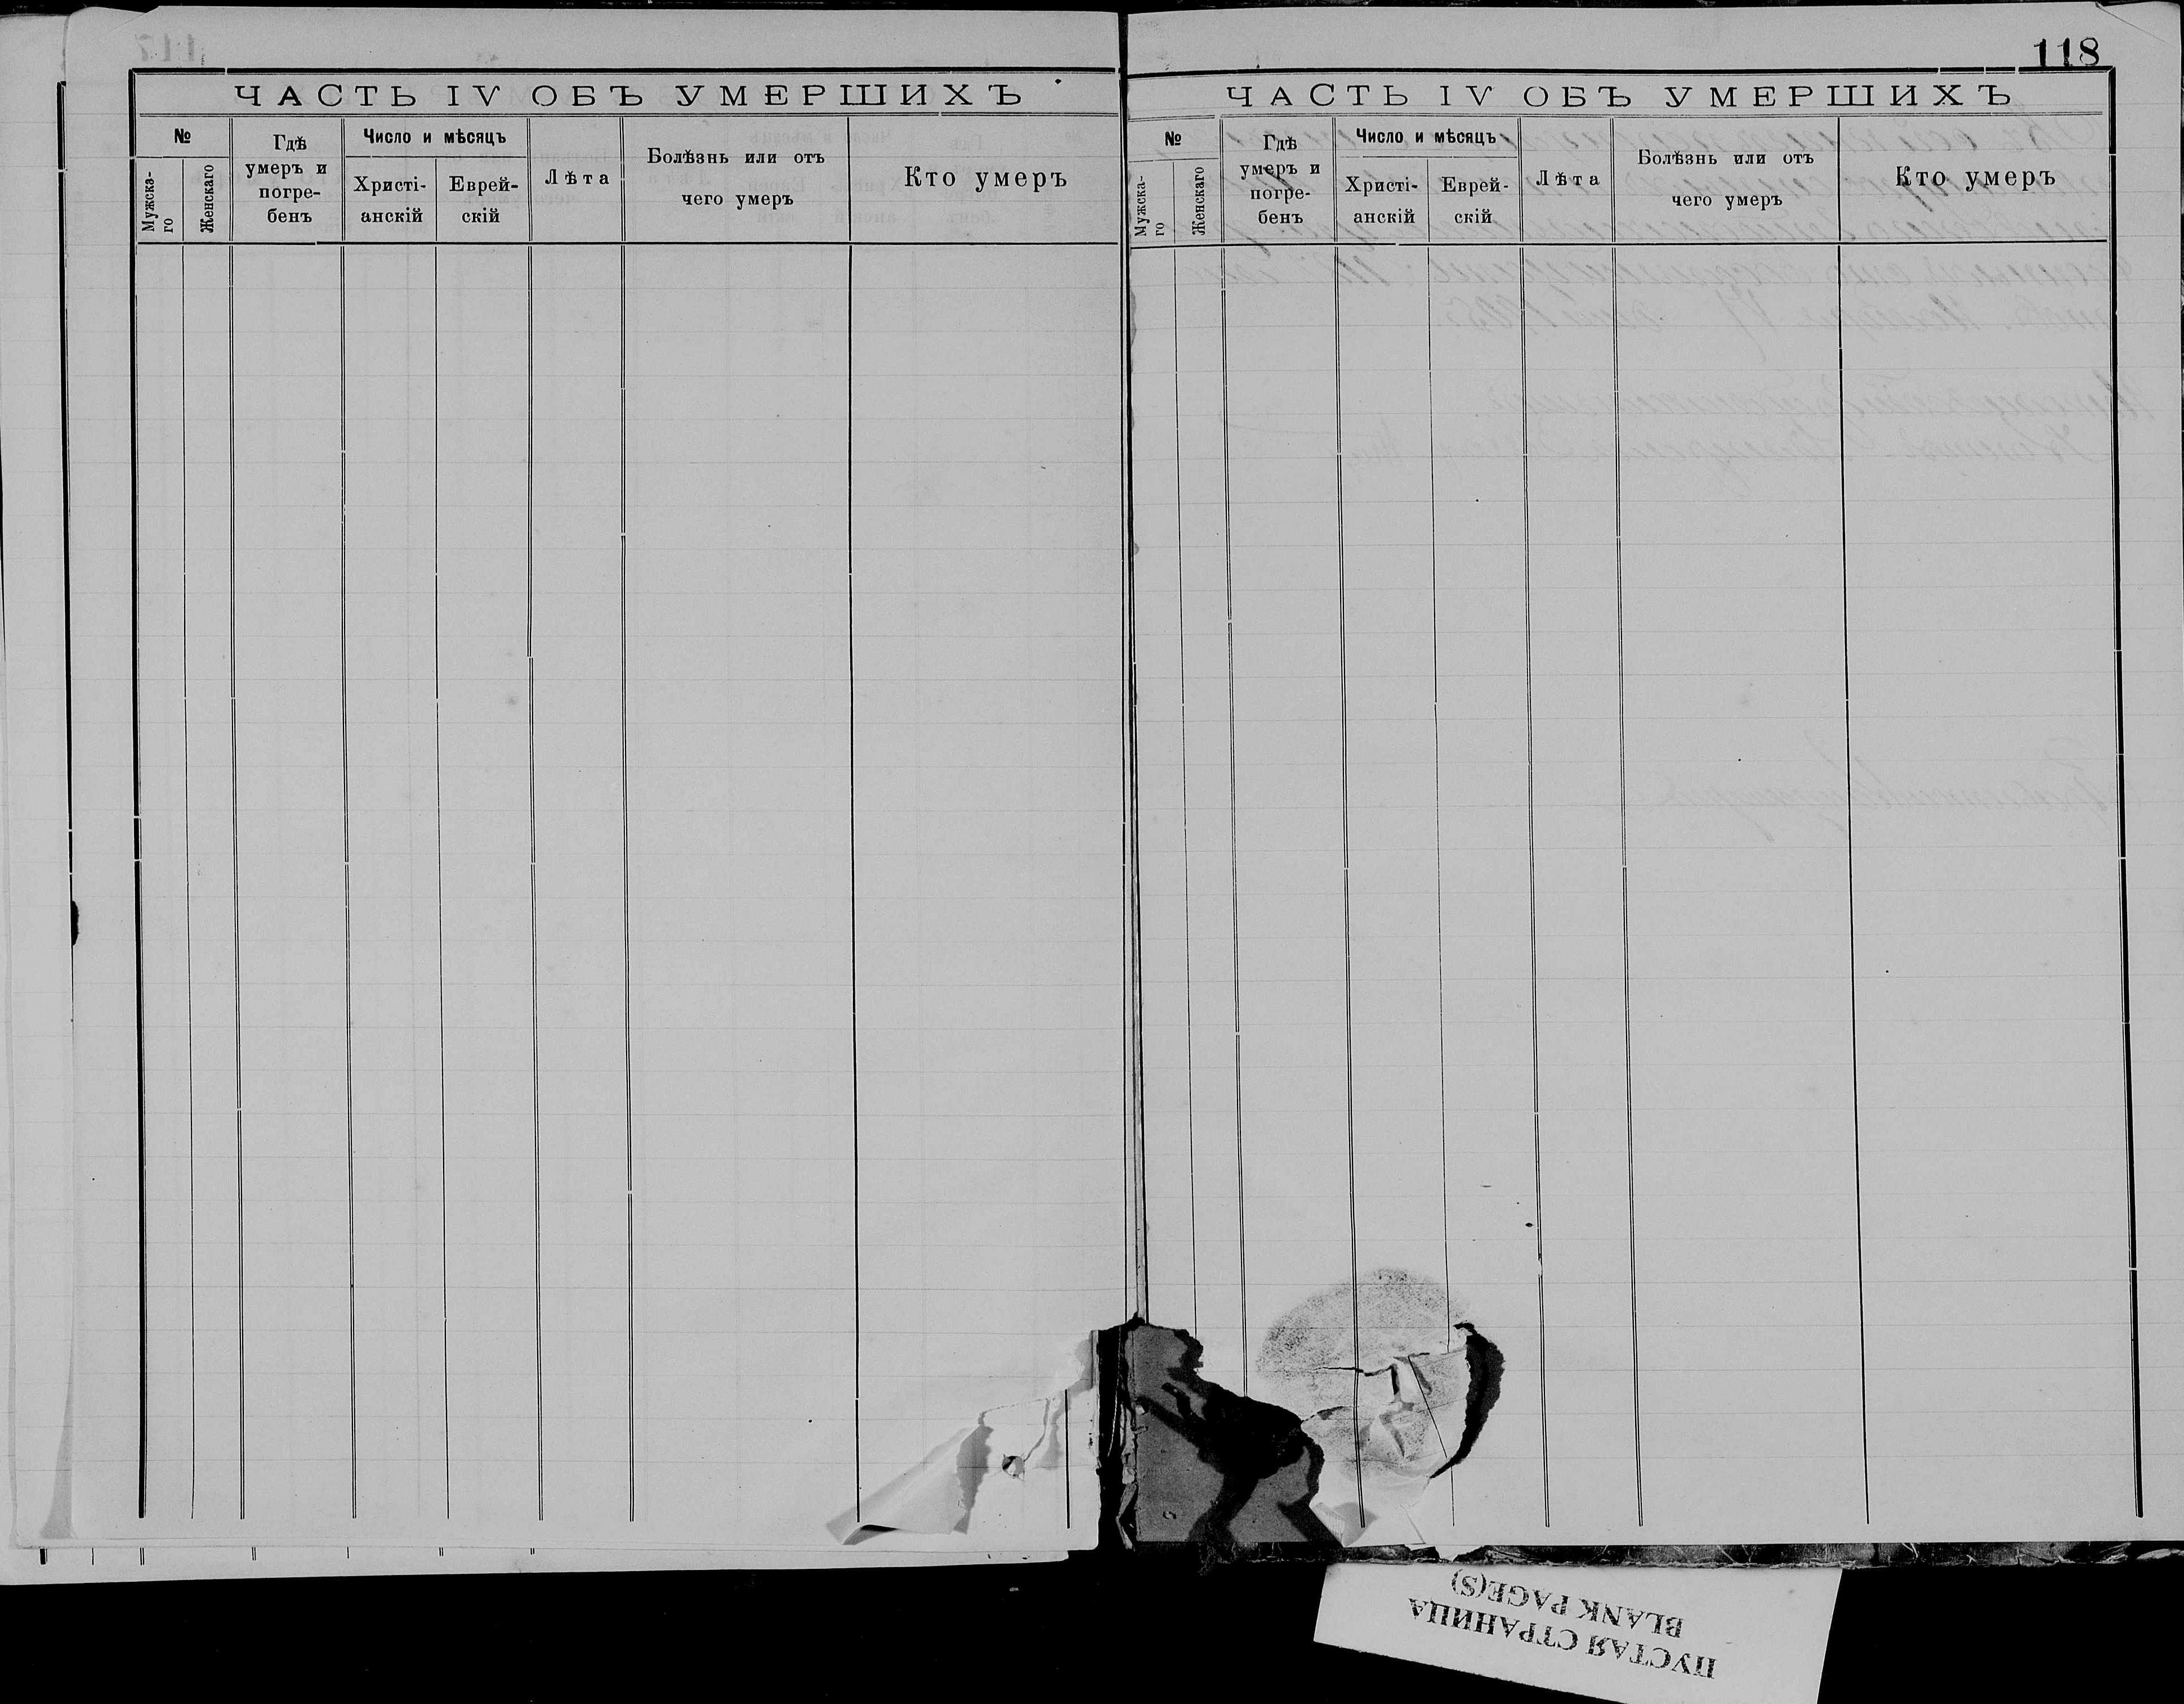 ЧАСТЬ IV ОБЪ УМЕРШИХЪ
№
Мужска-
го
Женскаго
Гдѣ
умеръ и
погре-
бенъ
Число и мѣсяцъ
Христі-
анскій
Еврей-
скій
Лѣта
Болѣзнь или отъ
чего умеръ
Кто умеръ
118
ЧАСТЬ IV ОБЪ УМЕРШИХЪ
№
Мужска-
го
Женскаго
Гдѣ
умеръ и
погре-
бенъ
Число и мѣсяцъ
Христі-
анскій
Еврей-
скій
Лѣта
Болѣзнь или отъ
чего умеръ
Кто умеръ
ПУСТАЯ СТРАНИЦА
BLANK PAGE(S)